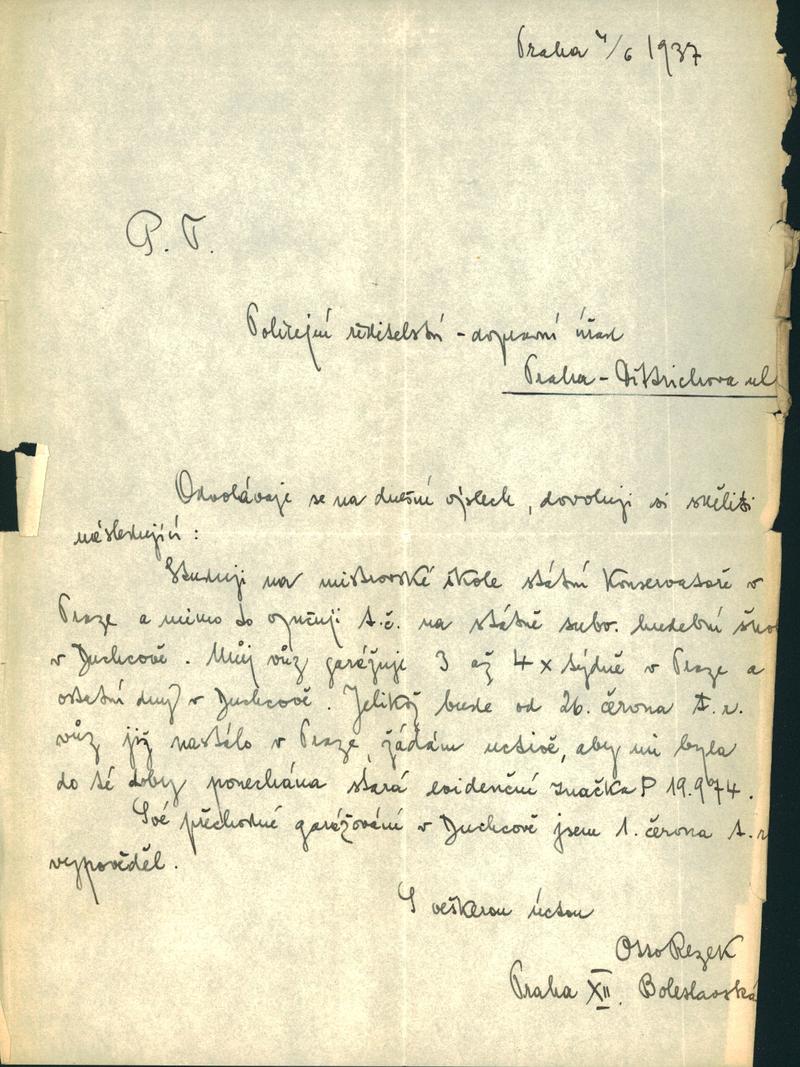 Praha 4/6 1937
P. T.
Policejní ředitelství - dopravní úřad
Praha - Dittrichova ul
Odvolávaje se na dnešní výslech, dovoluji si sděliti
následující:
Studuji na mistrovské škole státní Konservatoře v
Praze a mimo to vyučuji t.č. na státně subv. hudební
v Duchcově. Můj vůz garážuji 3 až 4 x týdně v Praze a
ostatní dny v Duchcově. Jelikož bude od 26. června t. r.
vůz již nastálo v Praze, žádám uctivě, aby mi byla
do té doby ponechána stará evidenční značka P 19.974.
Své přechodné garážování v Duchcově jsem 1. června t. r
vypověděl.
S veškerou úctou
Otto Rezek
Praha XII. Boleslavská